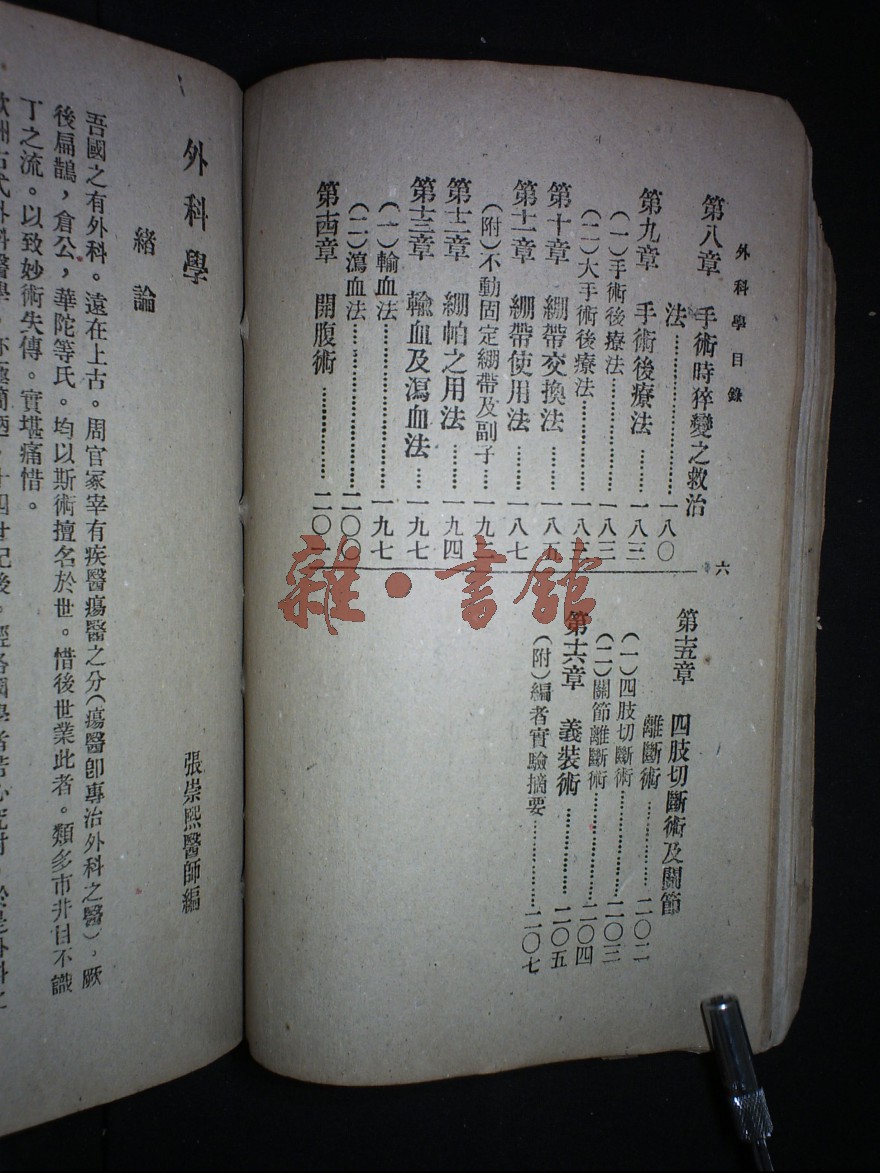 外科學目錄
六
第八章 手術時猝變之救治
法……一八〇
第九章 手術後療法……一八三
(一)手術後療法……一八三
(二)大手術後療法……一八三
第十章 繃帶交換法……一八五
第十一章 繃帶使用法……一八七
(附)不動固定繃帶及副子……一九二
第十二章 繃帕之用法……一九四
第十三章 輸血及瀉血法……一九七
(一)輸血法……一九七
(二)瀉血法……二〇〇
第十四章 開腹術……二〇一
第十五章 四肢切斷術及關節
離斷術……二〇二
(一)四肢切斷術……二〇三
(二)關節離斷術……二〇四
第十六章 義裝術……二〇五
(附)編者實驗摘要……二〇七
雜·書館
外科學
張崇熙醫師編
緒論
吾國之有外科。遠在上古。周官冢宰有疾醫瘍醫之分(瘍醫卽專治外科之醫),厥
後扁鵲,倉公,華陀等氏。均以斯術擅名於世。惜後世業此者。類多市井目不識
丁之流。以致妙術失傳。實堪痛惜。
十四世紀後。經各國學者苦心究討